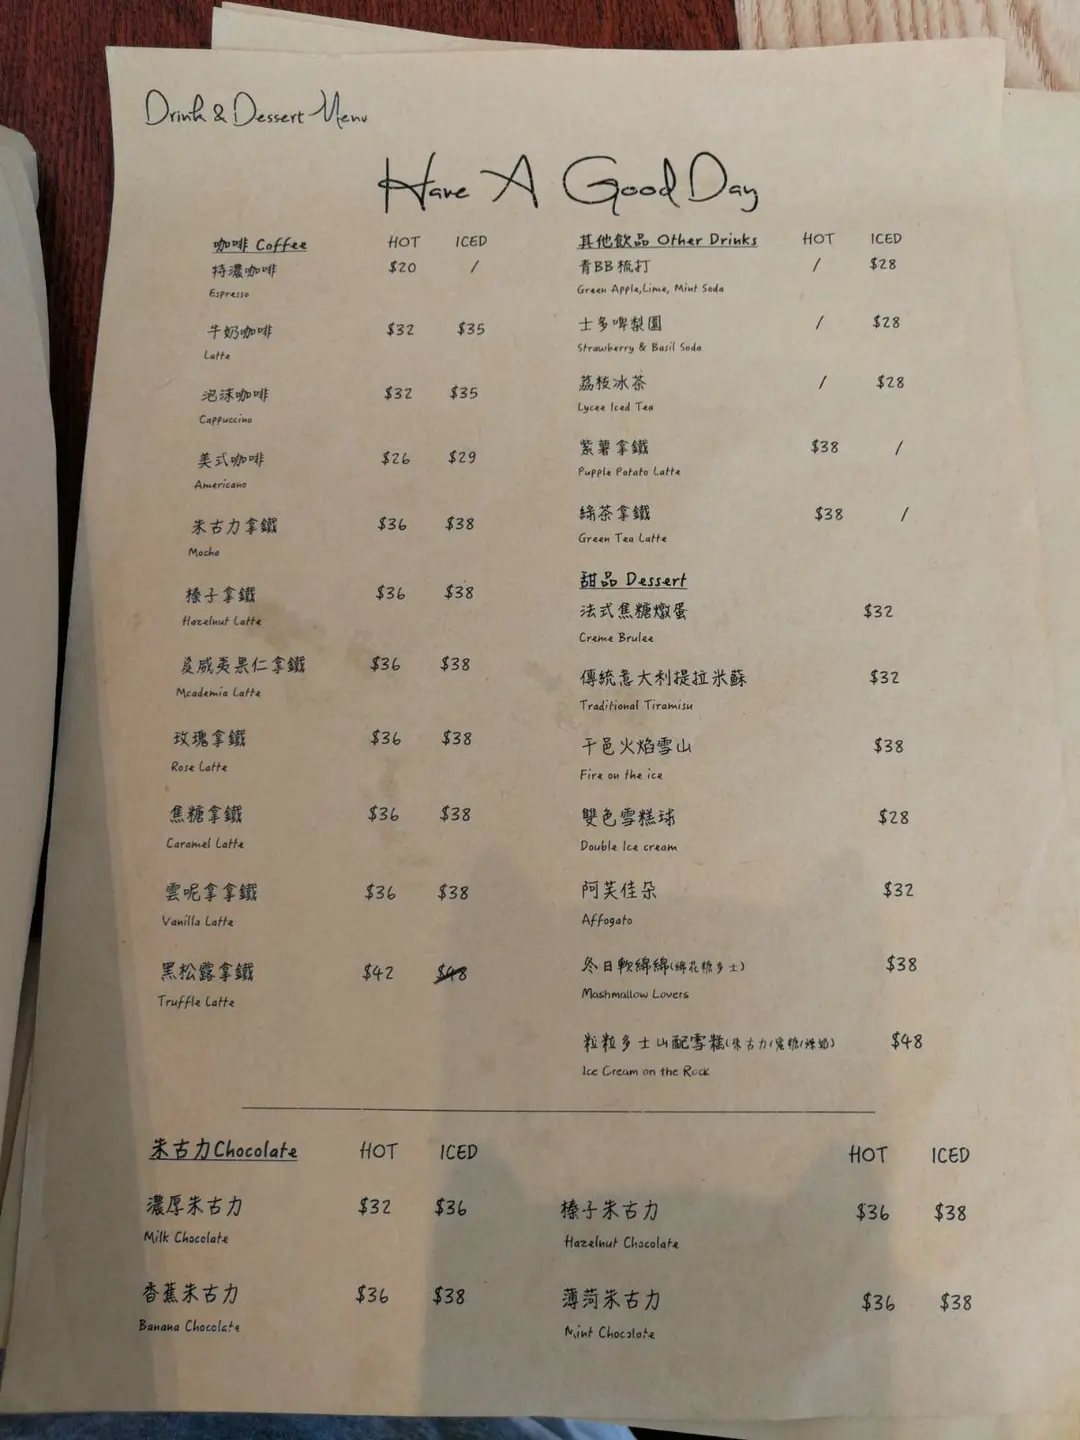 Drink & Dessert Menu
Have A Good Day
咖啡 Coffee HOT ICED
特濃咖啡 $20 /
Espresso
牛奶咖啡 $32 $35
Latte
泡沫咖啡 $32 $35
Cappuccino
美式咖啡 $26 $29
Americano
朱古力拿鐵 $36 $38
Mocha
榛子拿鐵 $36 $38
Hazelnut Latte
夏威夷果仁拿鐵 $36 $38
Mcademia Latte
玫瑰拿鐵 $36 $38
Rose Latte
焦糖拿鐵 $36 $38
Caramel Latte
雲呢拿拿鐵 $36 $38
Vanilla Latte
黑松露拿鐵 $42 $48
Truffle Latte
其他飲品 Other Drinks HOT ICED
青BB梳打 / $28
Green Apple,Lime, Mint Soda
士多啤梨園 / $28
Strawberry & Basil Soda
荔枝冰茶 / $28
Lycee Iced Tea
紫薯拿鐵 $38 /
Pupple Potato Latte
綠茶拿鐵 $38 /
Green Tea Latte
甜品 Dessert
法式焦糖燉蛋 $32
Creme Brulee
傳統意大利提拉米蘇 $32
Traditional Tiramisu
干邑火焰雪山 $38
Fire on the ice
雙色雪糕球 $28
Double Ice cream
阿芙佳朵 $32
Affogato
冬日軟綿綿(綿花糖多士) $38
Mashmallow Lovers
粒粒多士山配雪糕(朱古力/蜜糖/煉奶) $48
Ice Cream on the Rock
朱古力Chocolate HOT ICED
濃厚朱古力 $32 $36
Milk Chocolate
香蕉朱古力 $36 $38
Banana Chocolate
HOT ICED
榛子朱古力 $36 $38
Hazelnut Chocolate
薄荷朱古力 $36 $38
Mint Chocolate